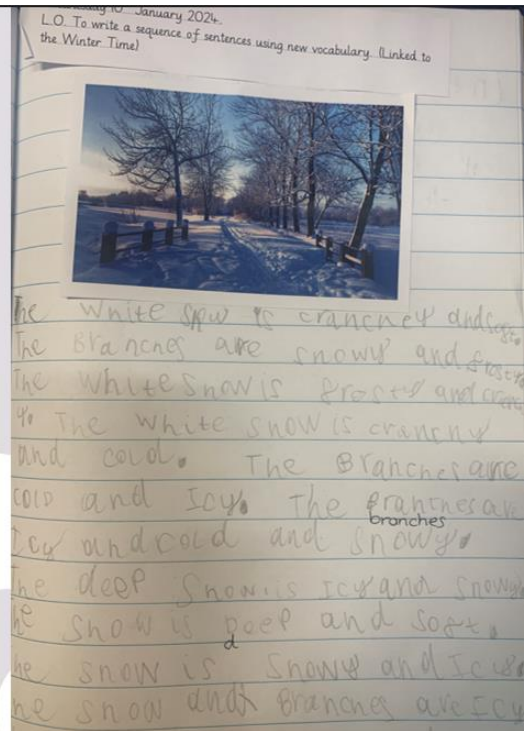 10 January 2024.
L.O. To write a sequence of sentences using new vocabulary. (Linked to
the Winter Time)
The white snw is crancney and soft.
The Branches are snowy and frosty
The white snow is frosty and
The white snow is cranchy
and cold. The Branches are
cold and Icy. The are
branches
Icy and cold and snowy.
The deep snow is Icy and snowy
he snow is Deep and soft.
d
he snow is snowy and Icy
he snow and Branches are Icy